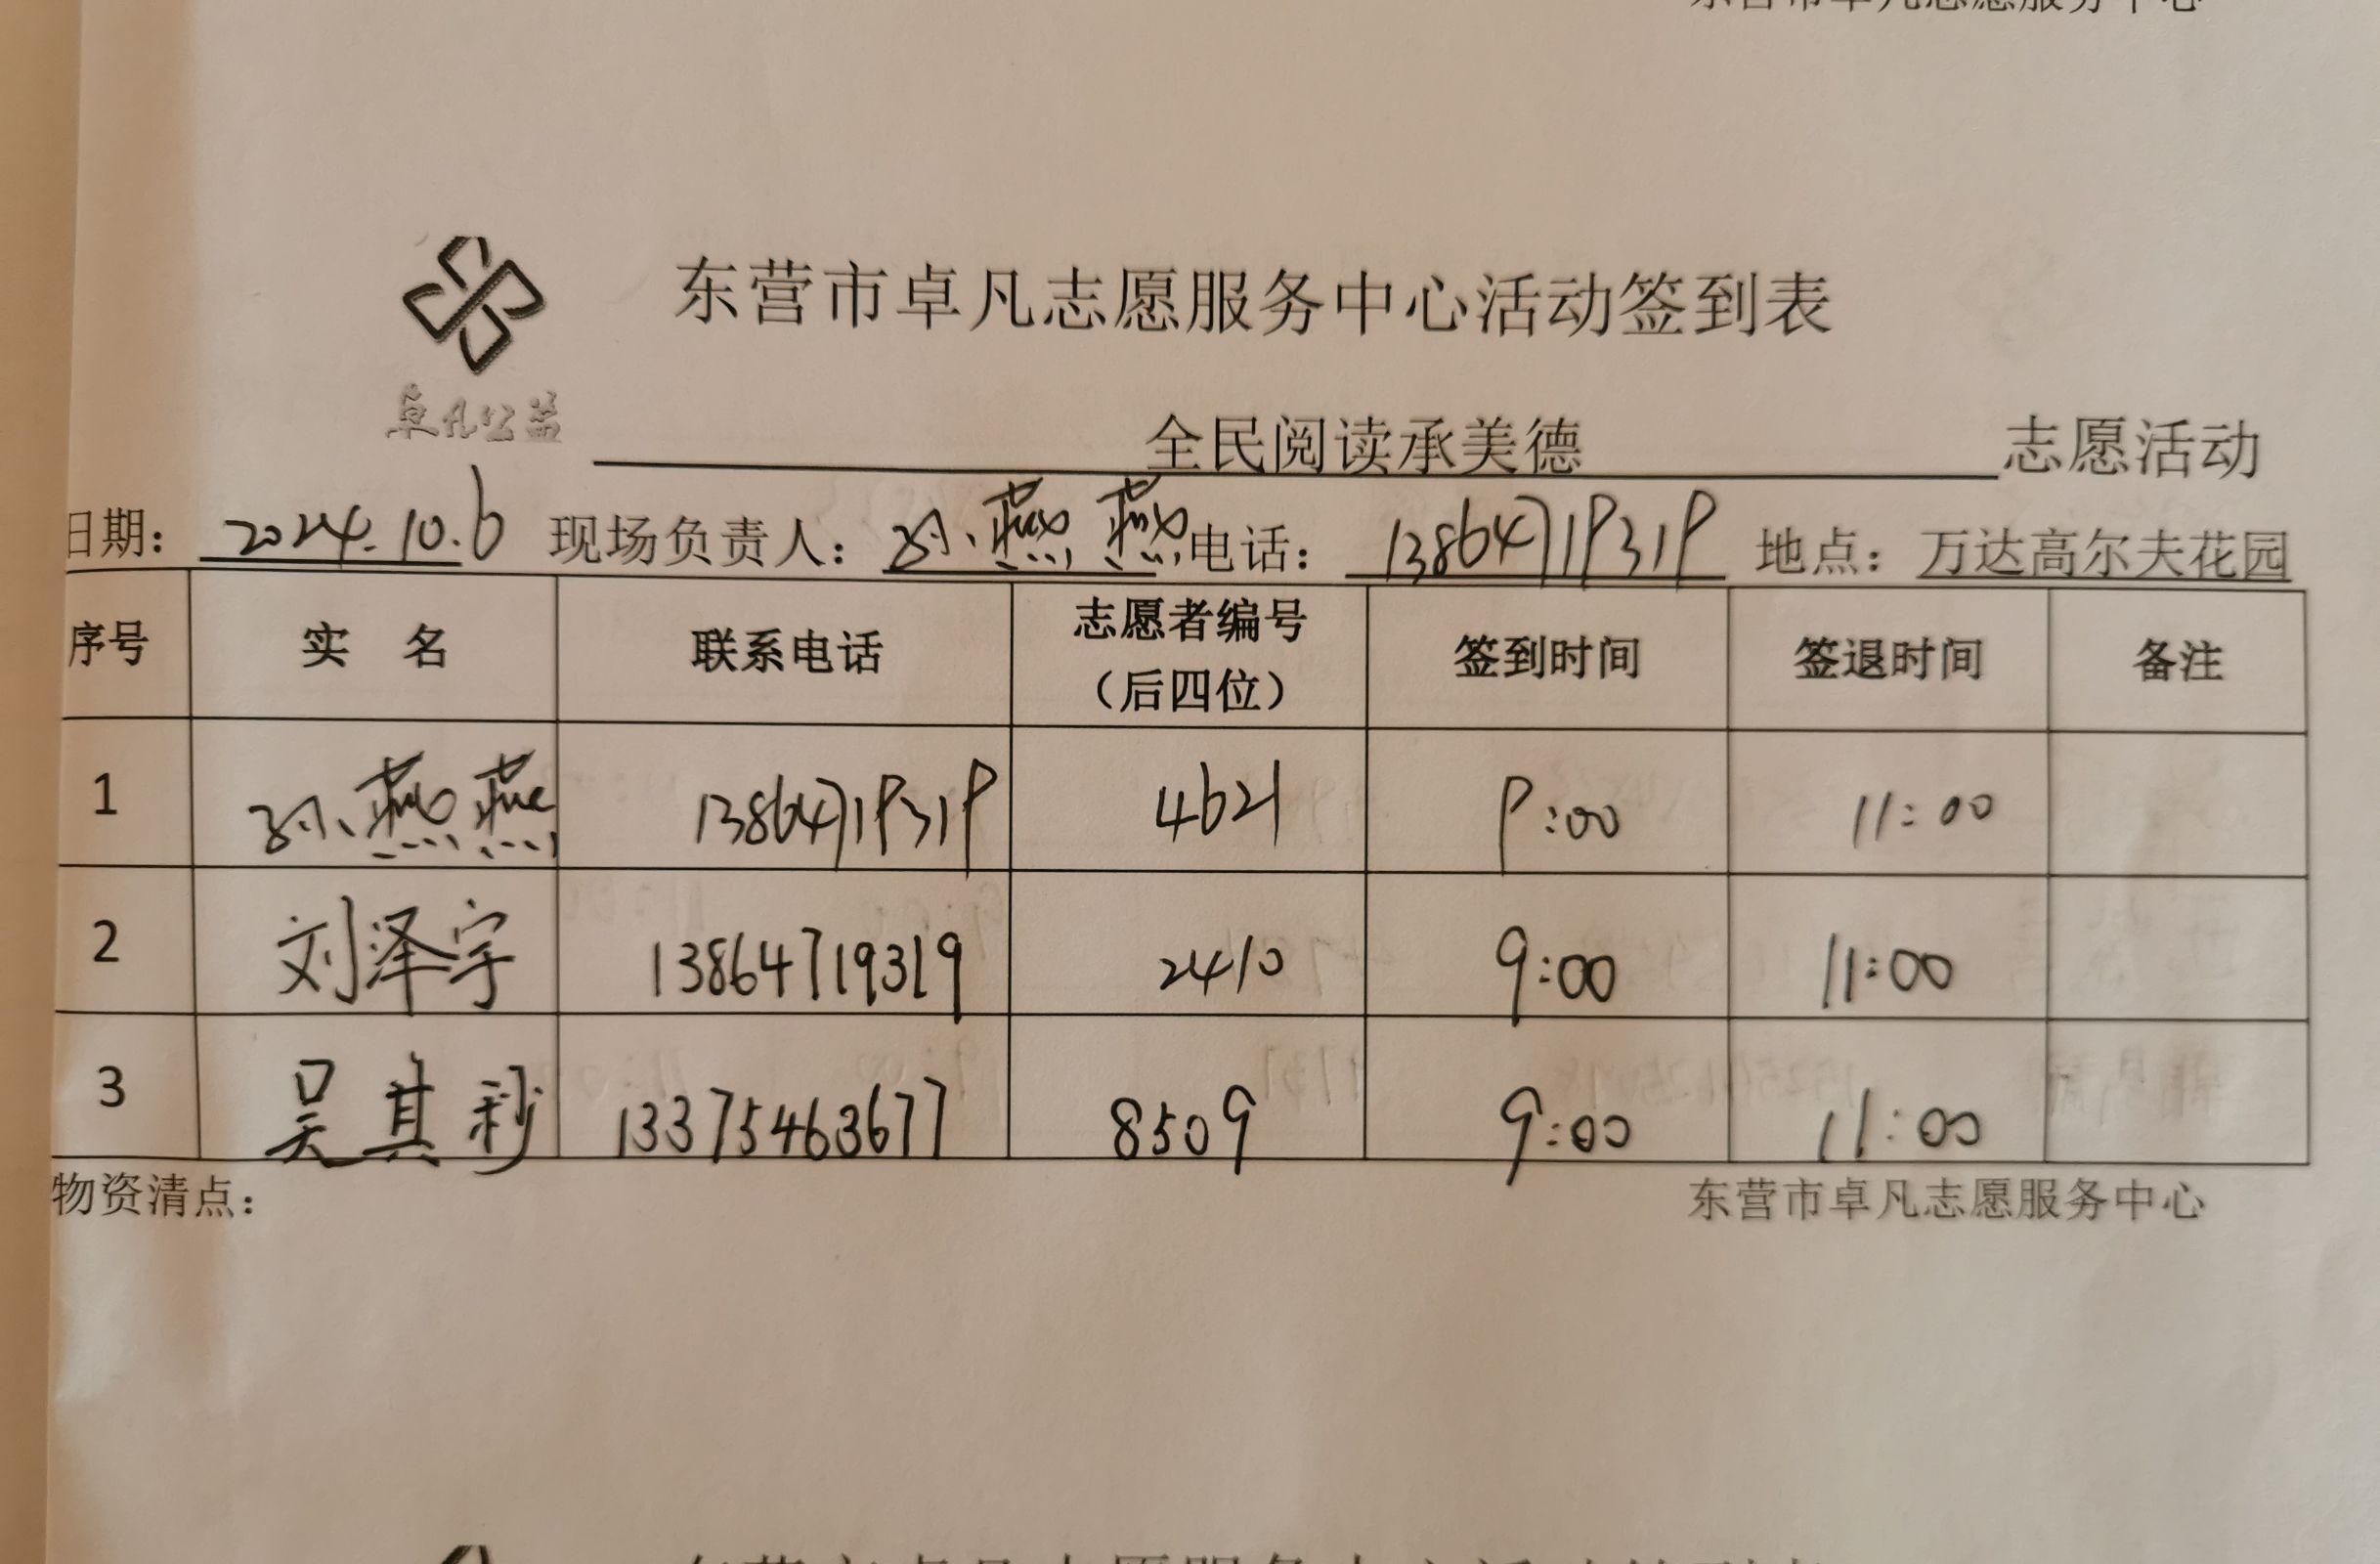 东营市卓凡志愿服务中心
东营市卓凡志愿服务中心活动签到表
卓凡公益
全民阅读承美德 志愿活动
日期: 2024.10.6 现场负责人: 孙燕燕 电话: 13864719319 地点: 万达高尔夫花园
序号 实 名 联系电话 志愿者编号（后四位） 签到时间 签退时间 备注
1 孙燕燕 13864719319 4621 9:00 11:00
2 刘泽宇 13864719319 2410 9:00 11:00
3 吴其秒 13375463677 8509 9:00 11:00
物资清点: 东营市卓凡志愿服务中心
东营市卓凡志愿服务中心活动签到表